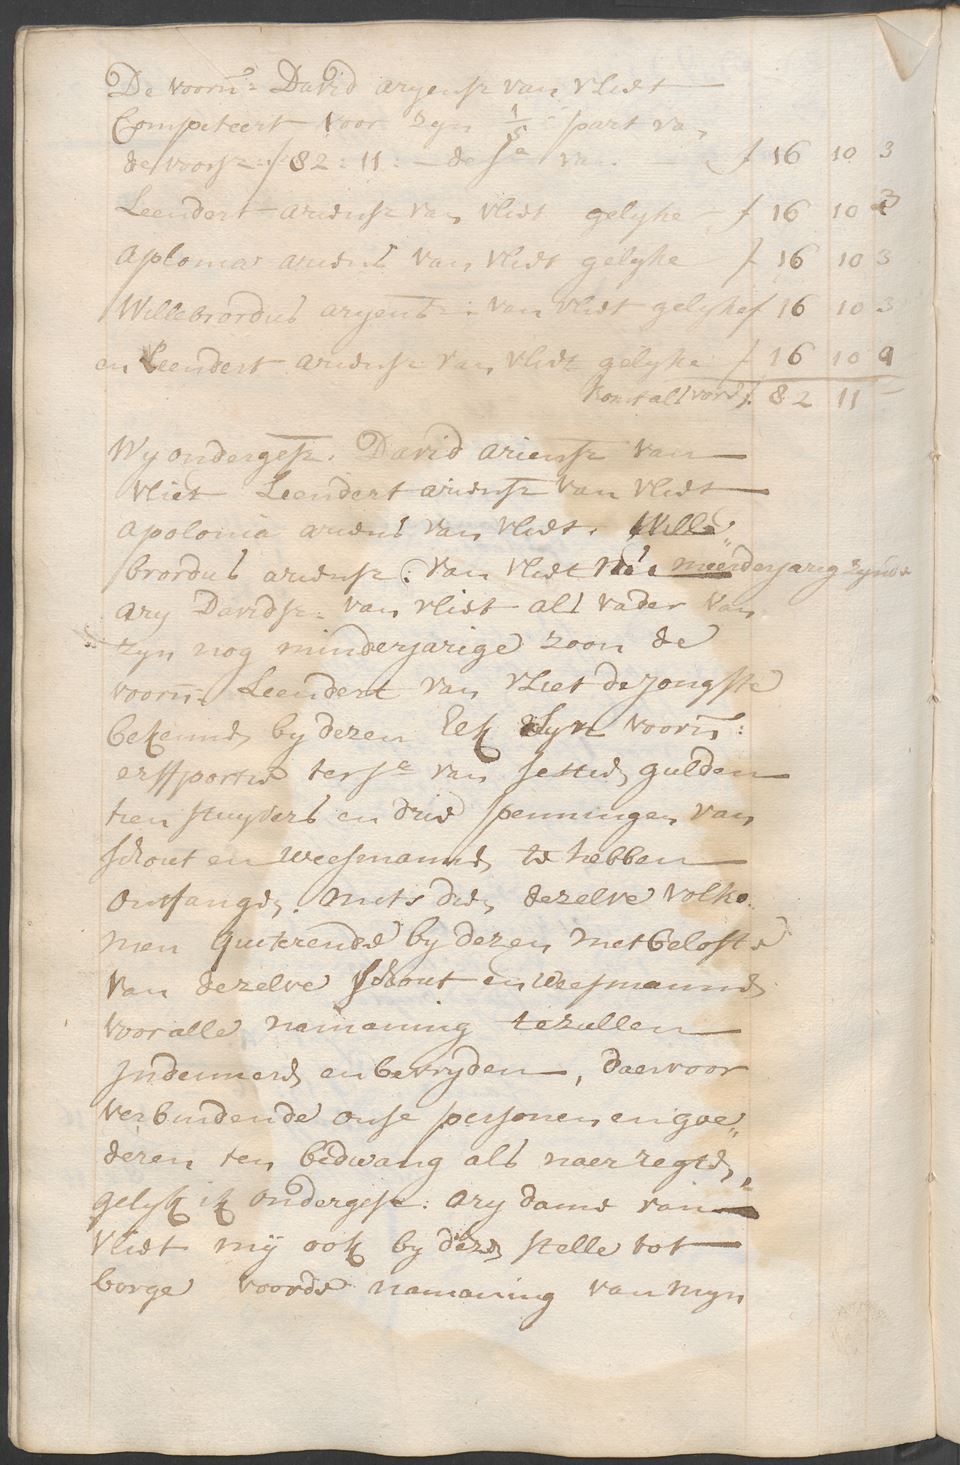 De voorn: David aryensz van Vliet
Competeert voor zyn 1/5 part van
de voorsz: f 82:11:- de sa van f 16 10 3
Leendert ariensz van Vliet gelyke f 16 10 3
Aplonia ariens van Vliet gelyke f 16 10 3
Willebrordus aryensz: van Vliet gelyke f 16 10 3
en Leendert ariensz van Vliet gelyke f 16 10
Komt als vore f 82 11 -
Wy ondergesz. David ariensz van
Vliet Leendert ariensz van Vliet
apolonia ariens van Vliet. Wille„
brordus ariensz: van Vliet meerderjarig zynde
ary Davidsz: van Vliet als vader van
zyn nog minderjarige zoon de
voorn: Leendert van Vliet de jongste
bekenne by dezen Elk zyn voorn:
erffportie ter sa van sestien gulden
tien stuyvers en drie penningen van
schout en weesmannen te hebben
ontfangen. mits dien dezelve volko„
men quiterende by dezen met belofte
van dezelve schout en weesmannen
voor alle namaning te zullen
Indemneren en bevryden, daervoor
verbindende onse personen en goe„
deren ten bedwang als naer regten,
gelyk ik ondergesz: ary van
Vliet mij ook by dezen stelle tot
borge voor de namaning van myn